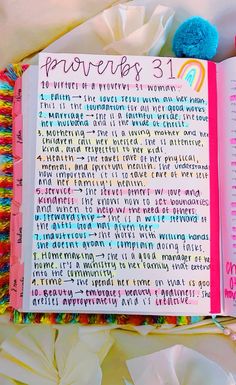 proverbs 31
10 virtues of a proverbs 31 woman:
1. Faith → she loves Jesus with all her heart.
This is the foundation for all her good works
2. Marriage → she is a faithful bride. She loves
her husband and is the bride of christ.
3. Mothering → she is a loving mother and her
children call her blessed. She is attentive,
kind, and respectful to her kids.
4. Health → she takes care of her physical,
mental, and spiritual health. She understands
how important it is to take care of her self
and her family's health.
5. Service → she serves others w/ love and
kindness. she knows how to set boundaries
and when to help w/ the need of others.
6. Stewardship → she is a wise steward of
the gifts God has given her.
7. Industrious → she works with willing hands.
She doesn't groan / complain doing tasks.
8. Homemaking → she is a good manager of the
home. it's a ministry to her family that extends
into the community.
9. Time → she spends her time on that is good
10. Beauty → embraces beauty & goodness. She
dresses appropriately and is creative.